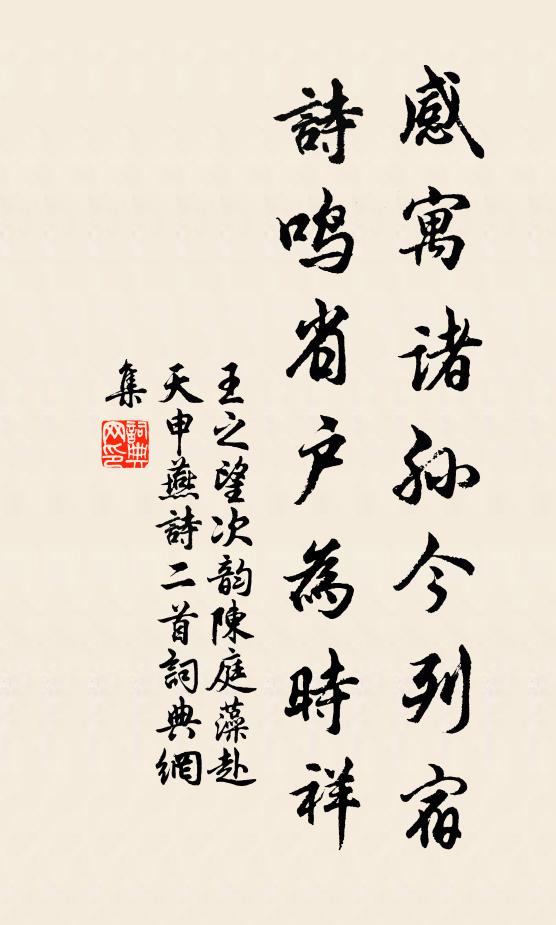 感寓诸孙今列宿
詩鸣省户為時祥
王之望次韵陳庭藻赴
天申燕詩二首詞典網
集
詞典
网印